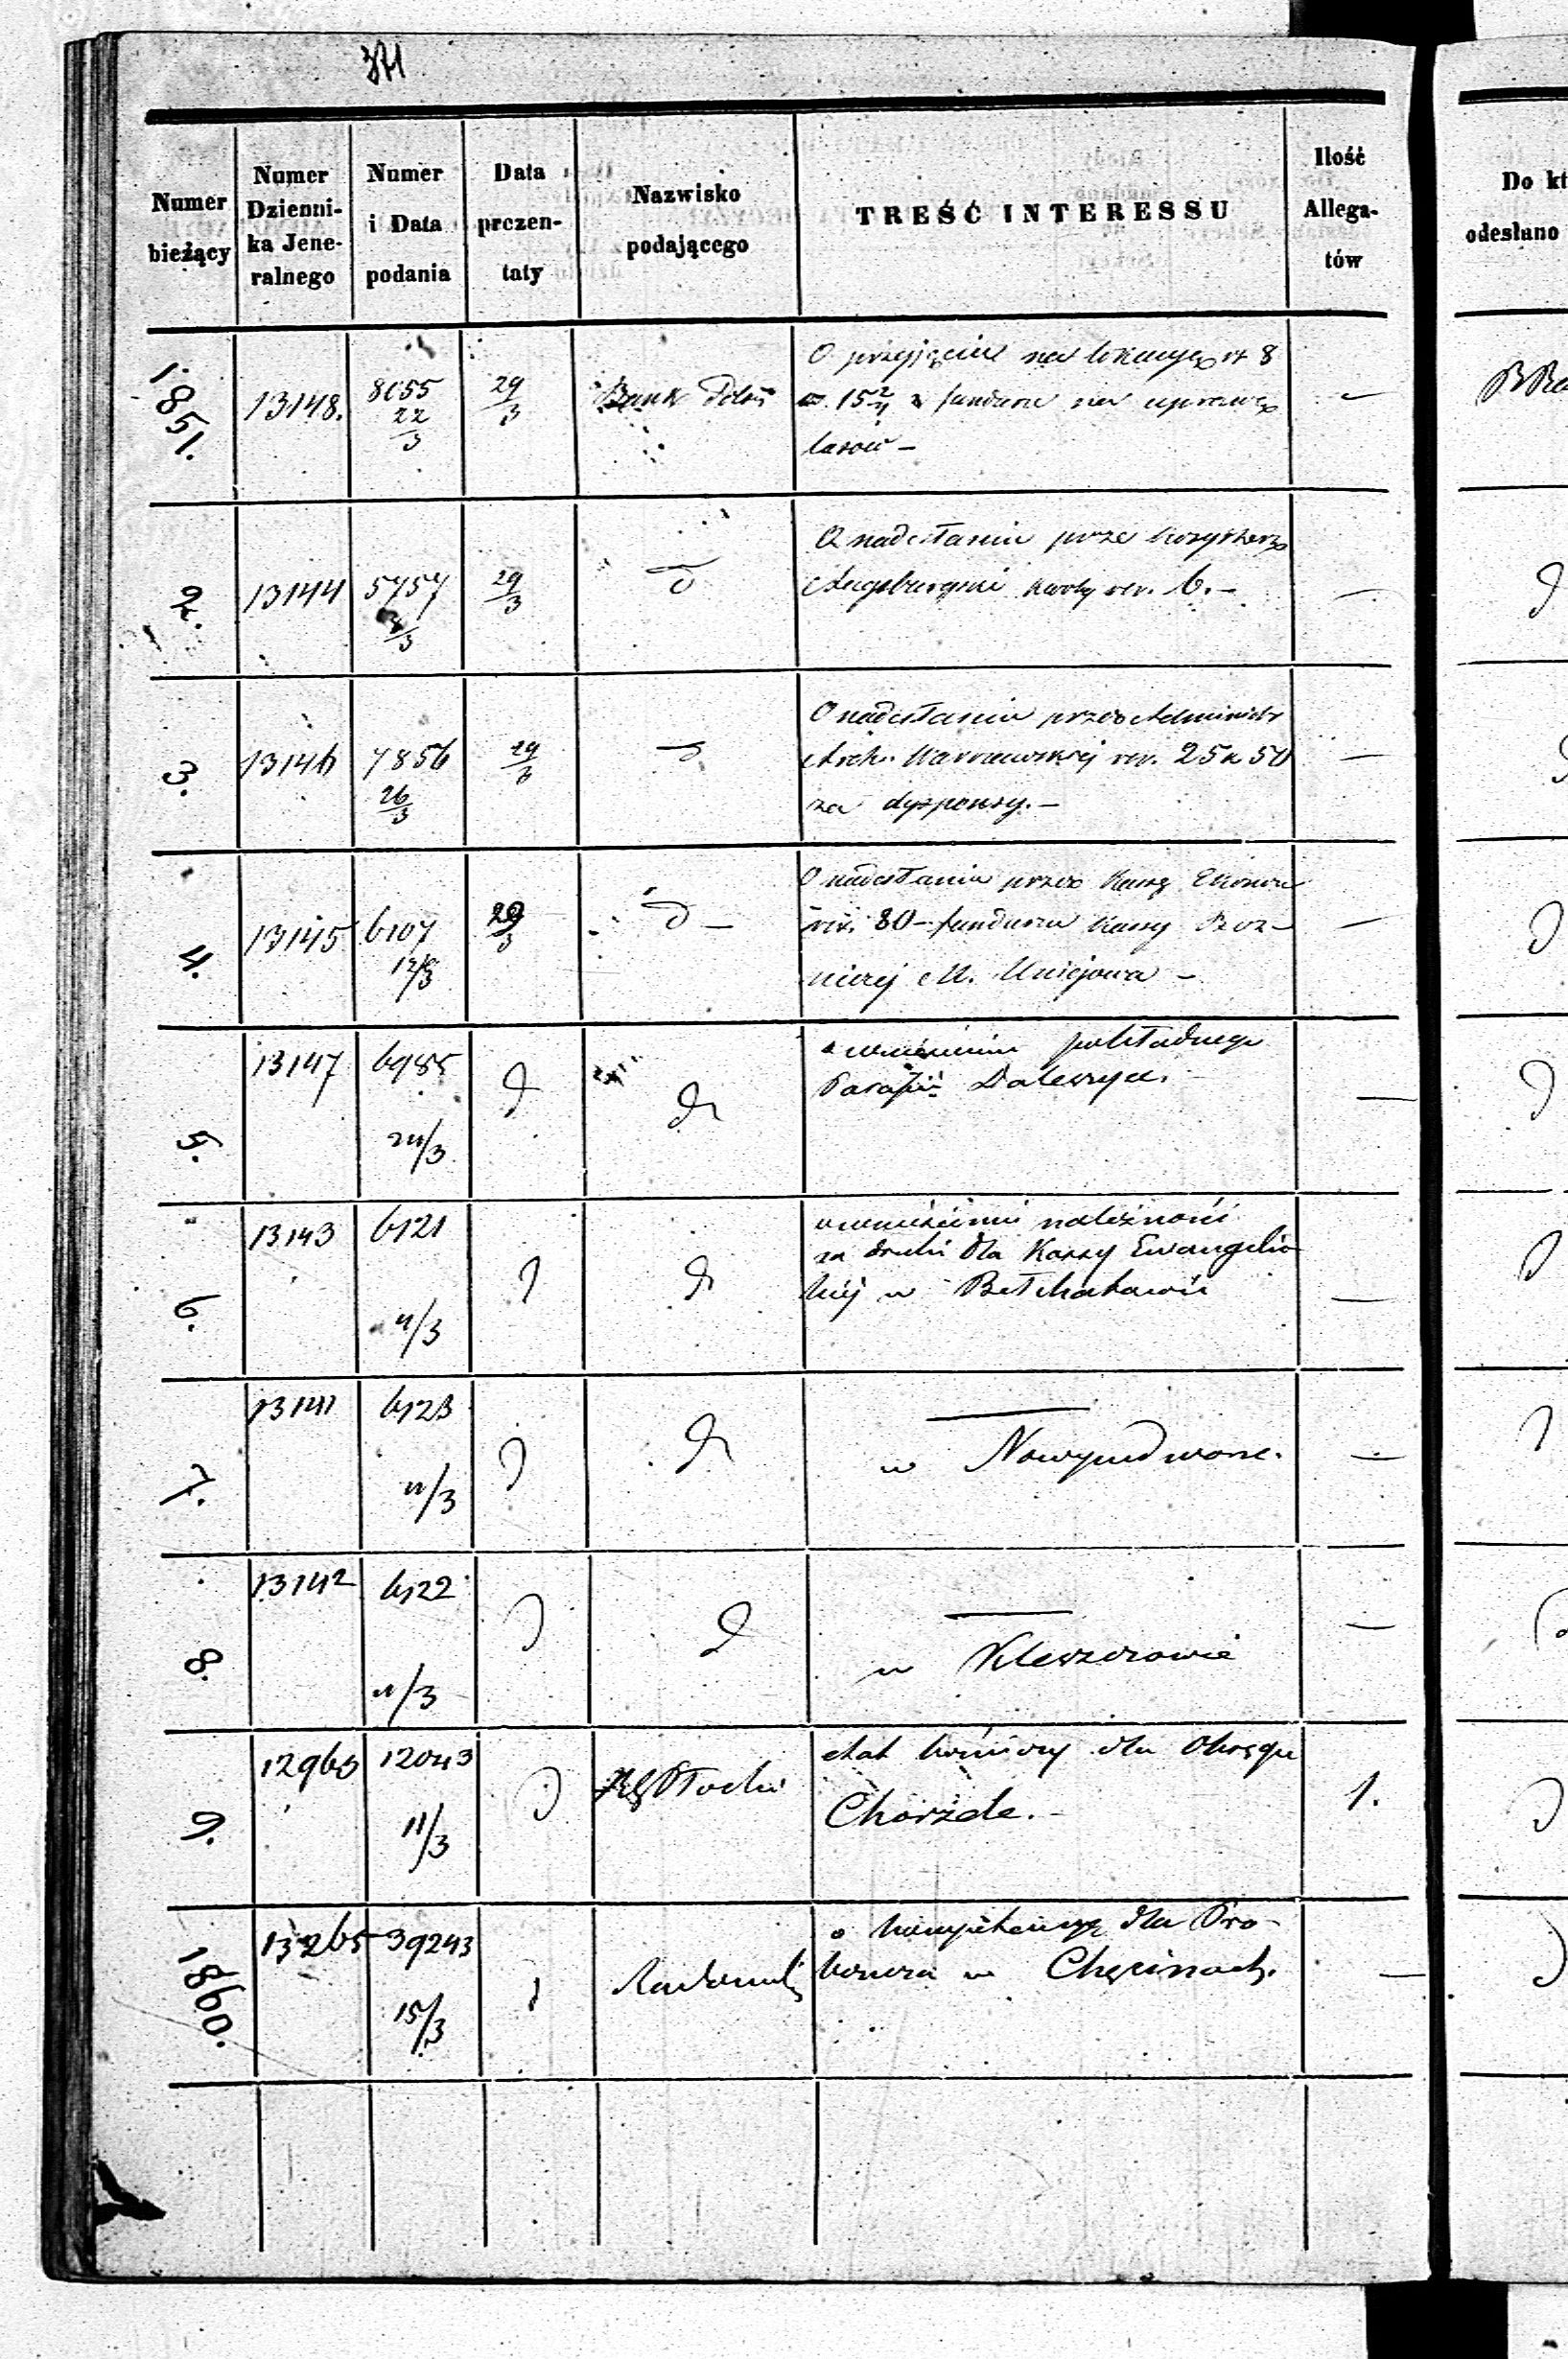 371
Numer bieżący
Numer Dzienni-ka Jene-ralnego
Numer i Data podania
Data prezen-taty
Nazwisko podającego
TREŚĆ INTERESSU
Ilość Allega-tów
Do kt
odesłano
1851. 13148. 8055 22/3 29/3 Bank Polski O przyjęciu na lokacyę rs 8
k. 15 z funduszu na uprawę
lasów –
2. 13144 5757 29/3 d O nadesłaniu przez
kwoty rsr. 6. –
3. 13146 7856 26/3 29/3 d O nadesłaniu przez Administr
Arch. Warszawskiej rsr. 25 k 50
za dyspensy. –
4. 13145 6107 12/3 29/3 d – O nadesłaniu przez Kassę Ekonom
rsr. 80 – funduszu Kassy Boż-
niczej M. Uniejowa –
5. 13147 6985 24/3 d d o wniesieniu pokładnego
Parafii Daleszyce.
6. 13143 6121 11/3 d d o wniesieniu należności
za druki dla Kassy Ewangelic
kiej w Bełchatowie
7. 13141 6123 11/3 d d —
w Nowymdworze.
8. 13142 6122 11/3 d d —
w Kleszczowie
9. 12963 12043 11/3 d Płocki etat dla Okręgu
Chorzele. – 1.
1860. 13265 39243 15/3 Radomski o kompetencyę dla Pro-
boszcza w Chęcinach.